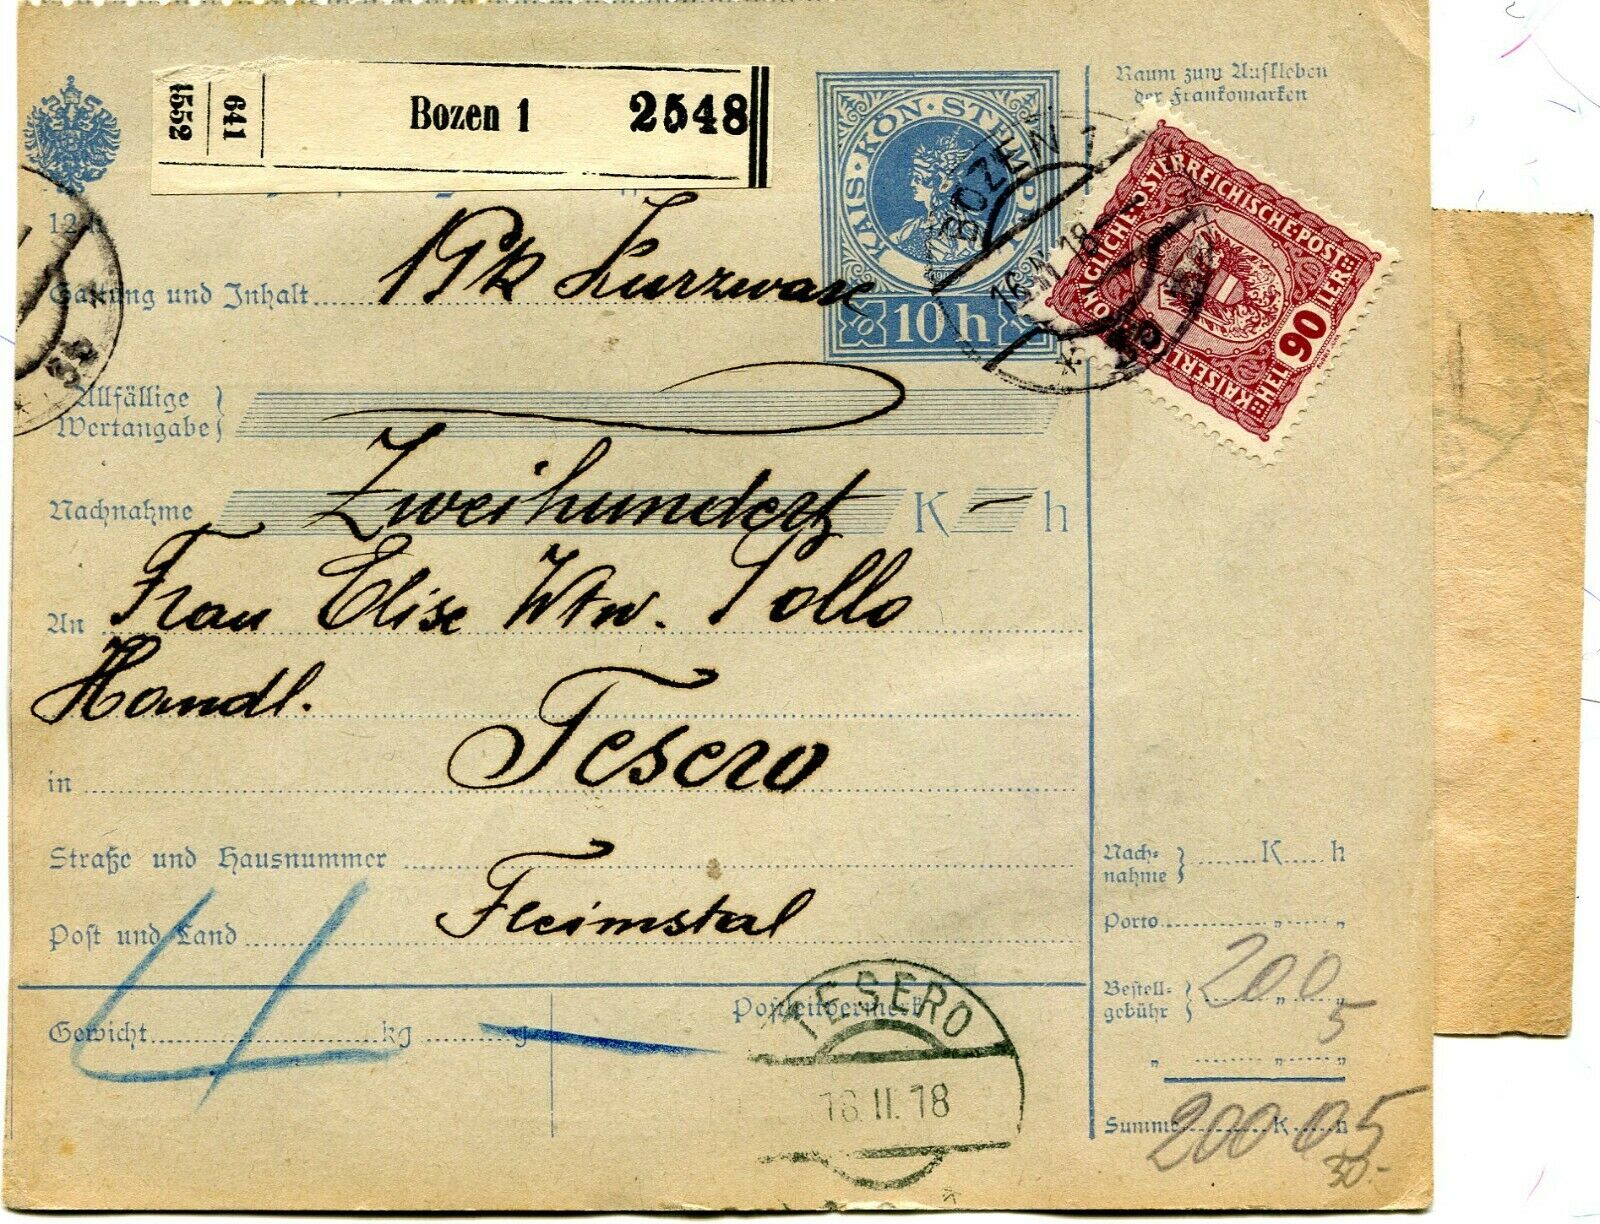 Raum zum Aufkleben
der Frankomarken
1552
641
Bozen 1 2548
KAIS·KÖN·STEMPEL
10 h
BOZEN 1
16.II.18
KAISERLICHE KÖNIGLICHE ÖSTERREICHISCHE POST
90 HELLER
Gattung und Inhalt 1 Pk Kurzware
Allfällige
Wertangabe
Nachnahme Zweihundert K — h
An Frau Elise Wtw. Lollo
Handl.
in Tesero
Straße und Hausnummer
Post und Land Fleimstal
Gewicht 4 kg — g
Postleitvermerk
TESERO
18.II.18
Nach-
nahme K h
Porto
Bestell-
gebühr 200
5
Summe 200 K 05 h
30.-